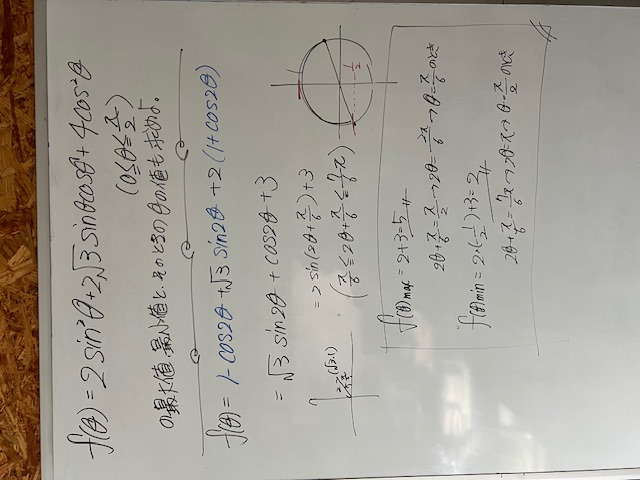 f(θ) = 2sin²θ + 2√3 sinθcosθ + 4cos²θ
(0≦θ≦π/2)
の最大値、最小値と、そのときのθの値を求めよ。
f(θ) = 1-cos2θ + √3 sin2θ + 2(1+cos2θ)
= √3 sin2θ + cos2θ + 3
= 2 sin(2θ+π/6) + 3
(π/6 ≦ 2θ+π/6 ≦ 7/6π)
(√3,1)
2
π/6
-1/2
f(θ)max = 2+3=5
2θ+π/6 = π/2 → 2θ = 2π/6 → θ = π/6 のとき
f(θ)min = 2・(-1/2)+3=2
2θ+π/6 = 7/6π → 2θ=π → θ=π/2 のとき